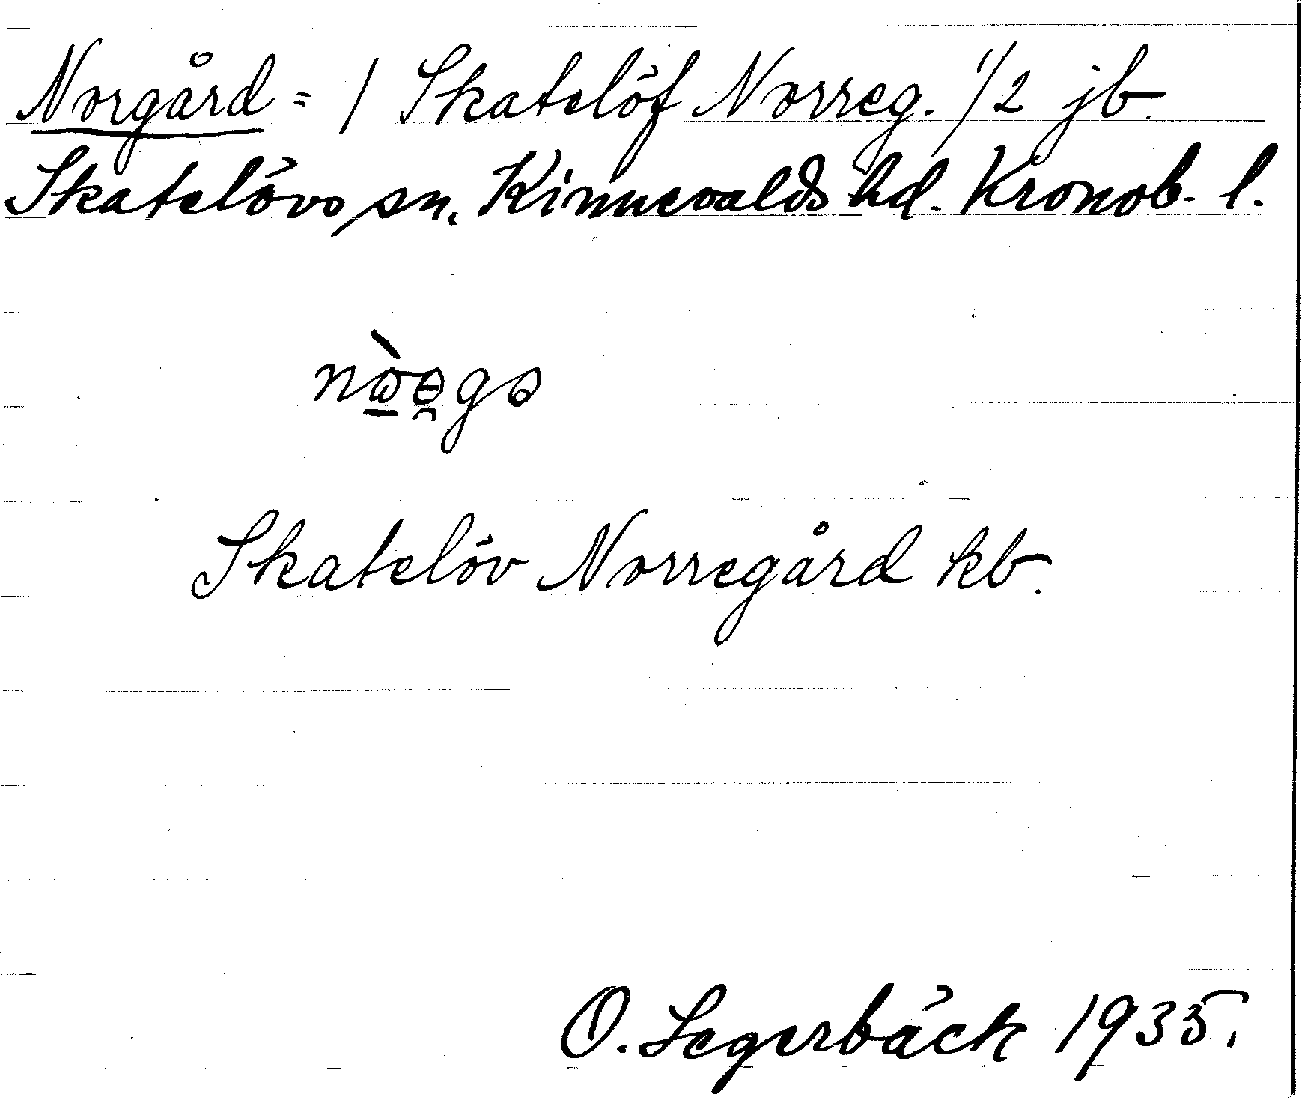 Norgård = / Skatelöf Norreg. 1/2 jb.
Skatelövs sn. Kinnevalds hd. Kronob. l.
Skatelöv Norregård kb.
O. Segerbäck 1935.